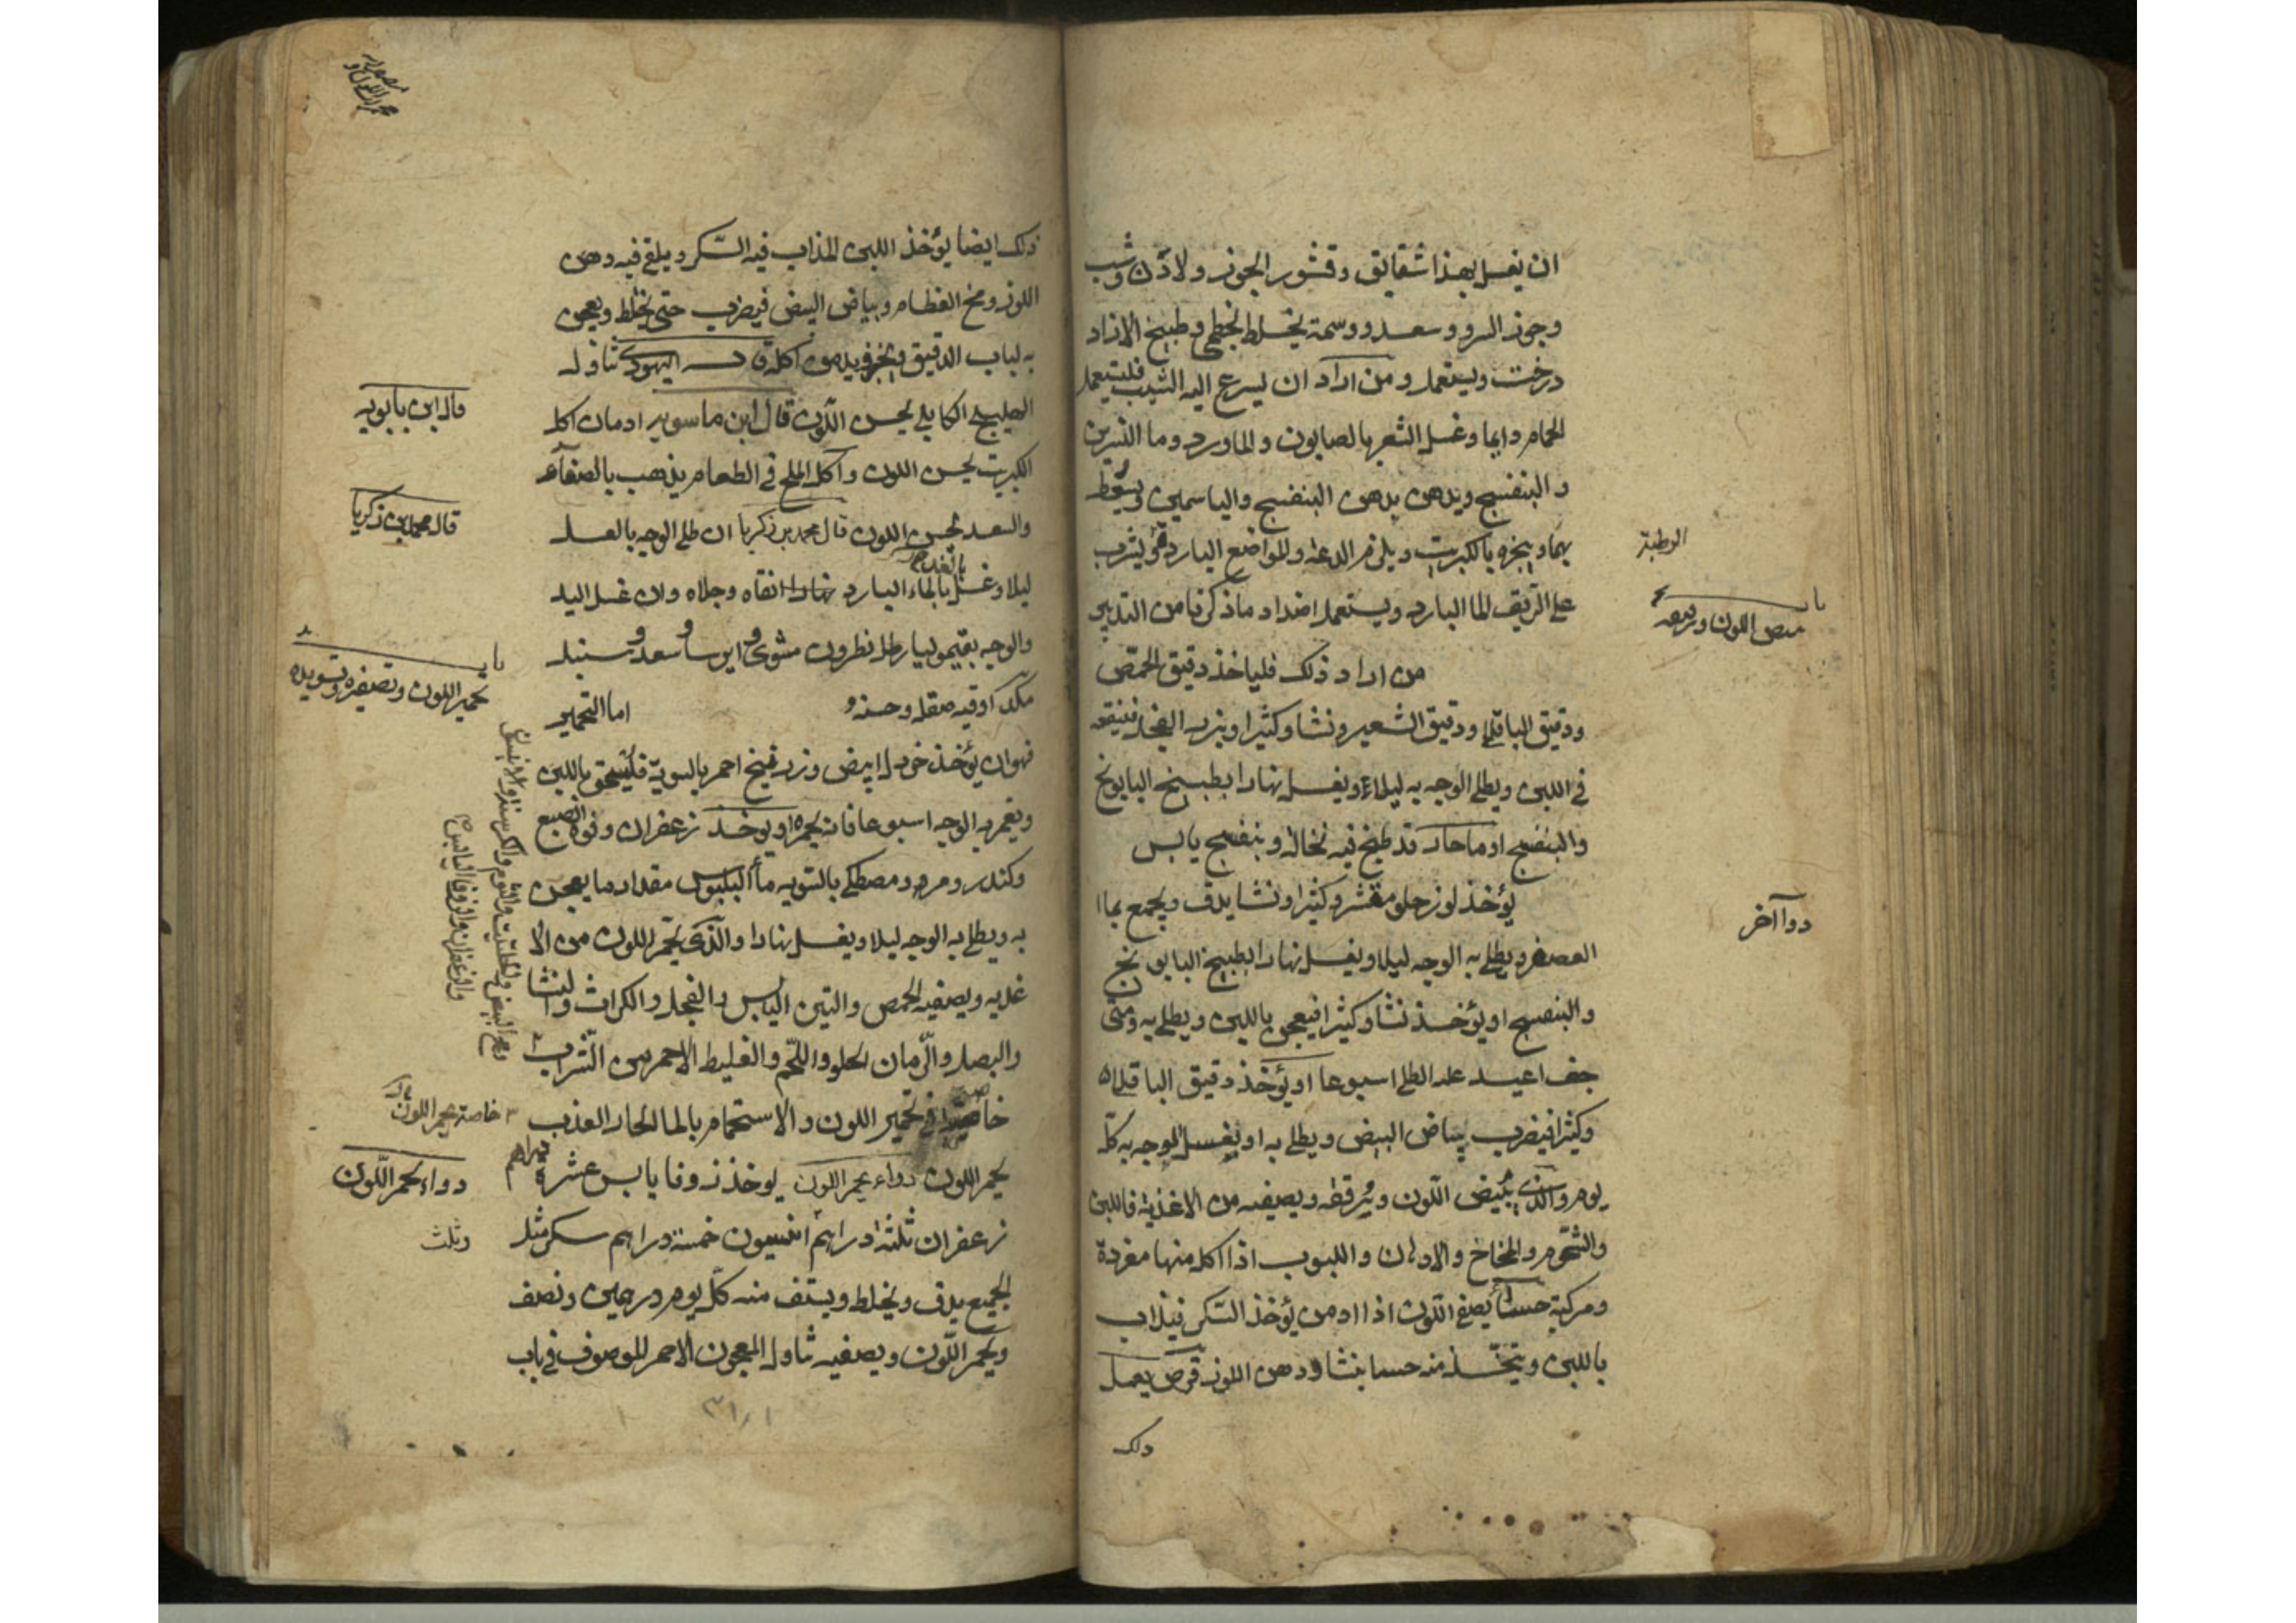 ان يغسل بهذا شقايق وقشور الجوز ولاذن وشب
وجوز السرو وسعد ووسمة يخلط بخطمى وطبيخ الازاد
درخت ويستعمل ومن اراد ان يسرع اليه الشيب فليستعمل
الحمام دايما وغسل الشعر بالصابون والماورد وما النسرين
والبنفسج ويدهن بدهن البنفسج والياسمين ويسعط
بهما ويبخره بالكبريت ويلزم الدعة والمواضع الباردة ويشرب
الرطبة
على الريق الما البارد ويستعمل اضداد ما ذكرنا من التدبير
باب
اللون
من اراد ذلك فلياخذ دقيق الحمص
ودقيق الباقلى ودقيق الشعير ونشا وكثيرا وبزر الفجل فينقعه
فى اللبن ويطلى الوجه به ليلا ويغسل نهارا بطبيخ البابونج
والبنفسج او ما حار قد طبخ فيه نخالة وبنفسج يابس
دوا آخر
يؤخذ لوز حلو مقشر وكثيرا ونشا يدق ويجمع بما
العصفر ويطلى به الوجه ليلا ويغسل نهارا بطبيخ البابونج
والبنفسج او يؤخذ نشا وكثيرا فيعجن باللبن ويطلى به ومتى
جف اعيد عليه الطلى اسبوعا او يؤخذ دقيق الباقلى
وكثيرا فيضرب ببياض البيض ويطلى به او يغسل الوجه به كل
يوم والذى يبيض اللون ويرققه ويصفيه من الاغذية فاللبن
والشحوم والمخاخ والادهان واللبوب اذا اكل منها مفردة
ومركبة حسا يصفى اللون اذا ادمن يؤخذ السكر فيذاب
باللبن ويتخذ منه حسا بنشا ودهن اللوز قرص يعمل
ذلك
ذلك ايضا يؤخذ اللبن المذاب فيه السكر ويلقى فيه دهن
اللوز ومخ العظام وبياض البيض فيضرب حتى يختلط ويعجن
به لباب الدقيق ويخبز ويدمن اكله قال اليهودى تناول
الهليلج الكابلى يحسن اللون قال ابن ماسويه ادمان اكل
قال ابن بابويه
الكبريت يحسن اللون واكل الملح فى الطعام يذهب بالصفار
والسعد يحسن اللون قال محمد بن زكريا ان طلى الوجه بالعسل
قال محمد بن زكريا
ليلا وغسل بالماء البارد نهارا انقاه وجلاه وان غسل اليد
بالغداة
والوجه بقيموليا رطل نطرون مشوى وايرسا وسعد وسنبل
من كل اوقيه صقله وحسنه
اما التحمير
باب
تحمير اللون وتصفيره وتسويده
فهو ان يؤخذ خردل ابيض وزرنيخ احمر بالسوية فليسحق باللبن
ويغمر به الوجه اسبوعا فانه يحمره او يوخذ زعفران وفوة الصبغ
وكندر ومر ومصطكى بالسويه مقدار ما يعجن
به ويطلى به الوجه ليلا ويغسل نهارا والذى يحمر اللون من الا
غذيه ويصفيه الحمص والتين اليابس والفجل والكراث
والبصل والرمان الحلو واللحم والغليظ الاحمر من الشراب
فى تحمير اللون والاستحمام بالما الحار العذب
خاصة يحمر اللون
يحمر اللون دواء يحمر اللون يوخذ زوفا يابس عشرة دراهم
دواء يحمر اللون
زعفران ثلثة دراهم انيسون خمسة دراهم سكر مثل
وثلث
الجميع يدق ويخلط ويستف منه كل يوم درهمين ونصف
ويحمر اللون ويصفيه تناول المعجون الاحمر الموصوف فى باب